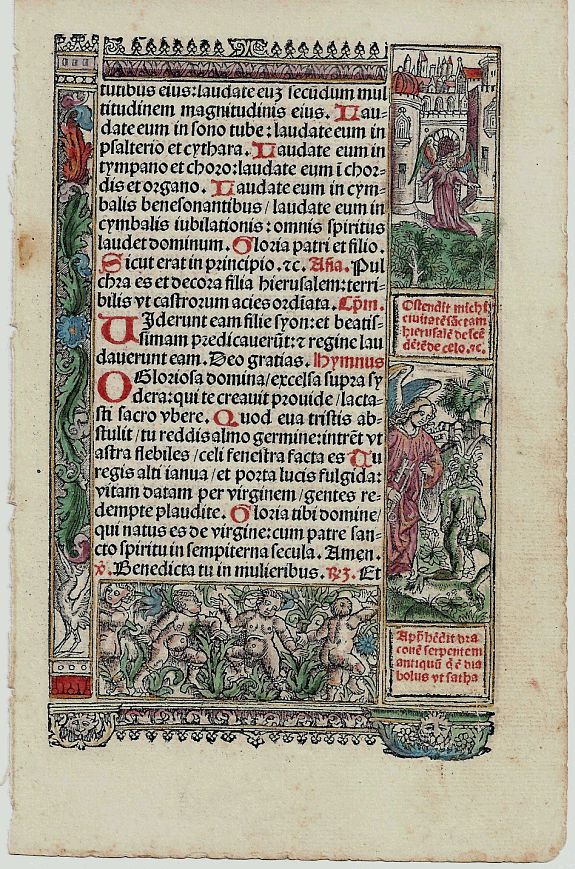 tutibus eius: laudate euȝ secūdum mul
titudinem magnitudinis eius. Lau-
date eum in sono tube: laudate eum in
psalterio et cythara. Laudate eum in
tympano et choro: laudate eum ī chor-
dis et organo. Laudate eum in cym-
balis benesonantibus / laudate eum in
cymbalis iubilationis: omnis spiritus
laudet dominum. Gloria patri et filio.
Sicut erat in principio. ⁊c. Aña. Pul
chra es et decora filia hierusalem: terri-
bilis vt castrorum acies ordīata. Cpm̄.
UIderunt eam filie syon: et beatis-
simam predicauerūt: ⁊ regine lau
dauerunt eam. Deo gratias. Hymnus
O Gloriosa domina / excelsa supra sy
dera: qui te creauit prouide / lacta-
sti sacro vbere. Quod eua tristis ab-
stulit / tu reddis almo germine: intrēt vt
astra flebiles / celi fenestra facta es Tu
regis alti ianua / et porta lucis fulgida:
vitam datam per virginem / gentes re-
dempte plaudite. Gloria tibi domine /
qui natus es de virgine: cum patre san-
cto spiritu in sempiterna secula. Amen.
℣. Benedicta tu in mulieribus. ℟. Et
Ostendit michi
ciuitatē sāctam
hierusalē descē
dētē de celo. ⁊c.
dra
conē serpentem
antiquū
bolus